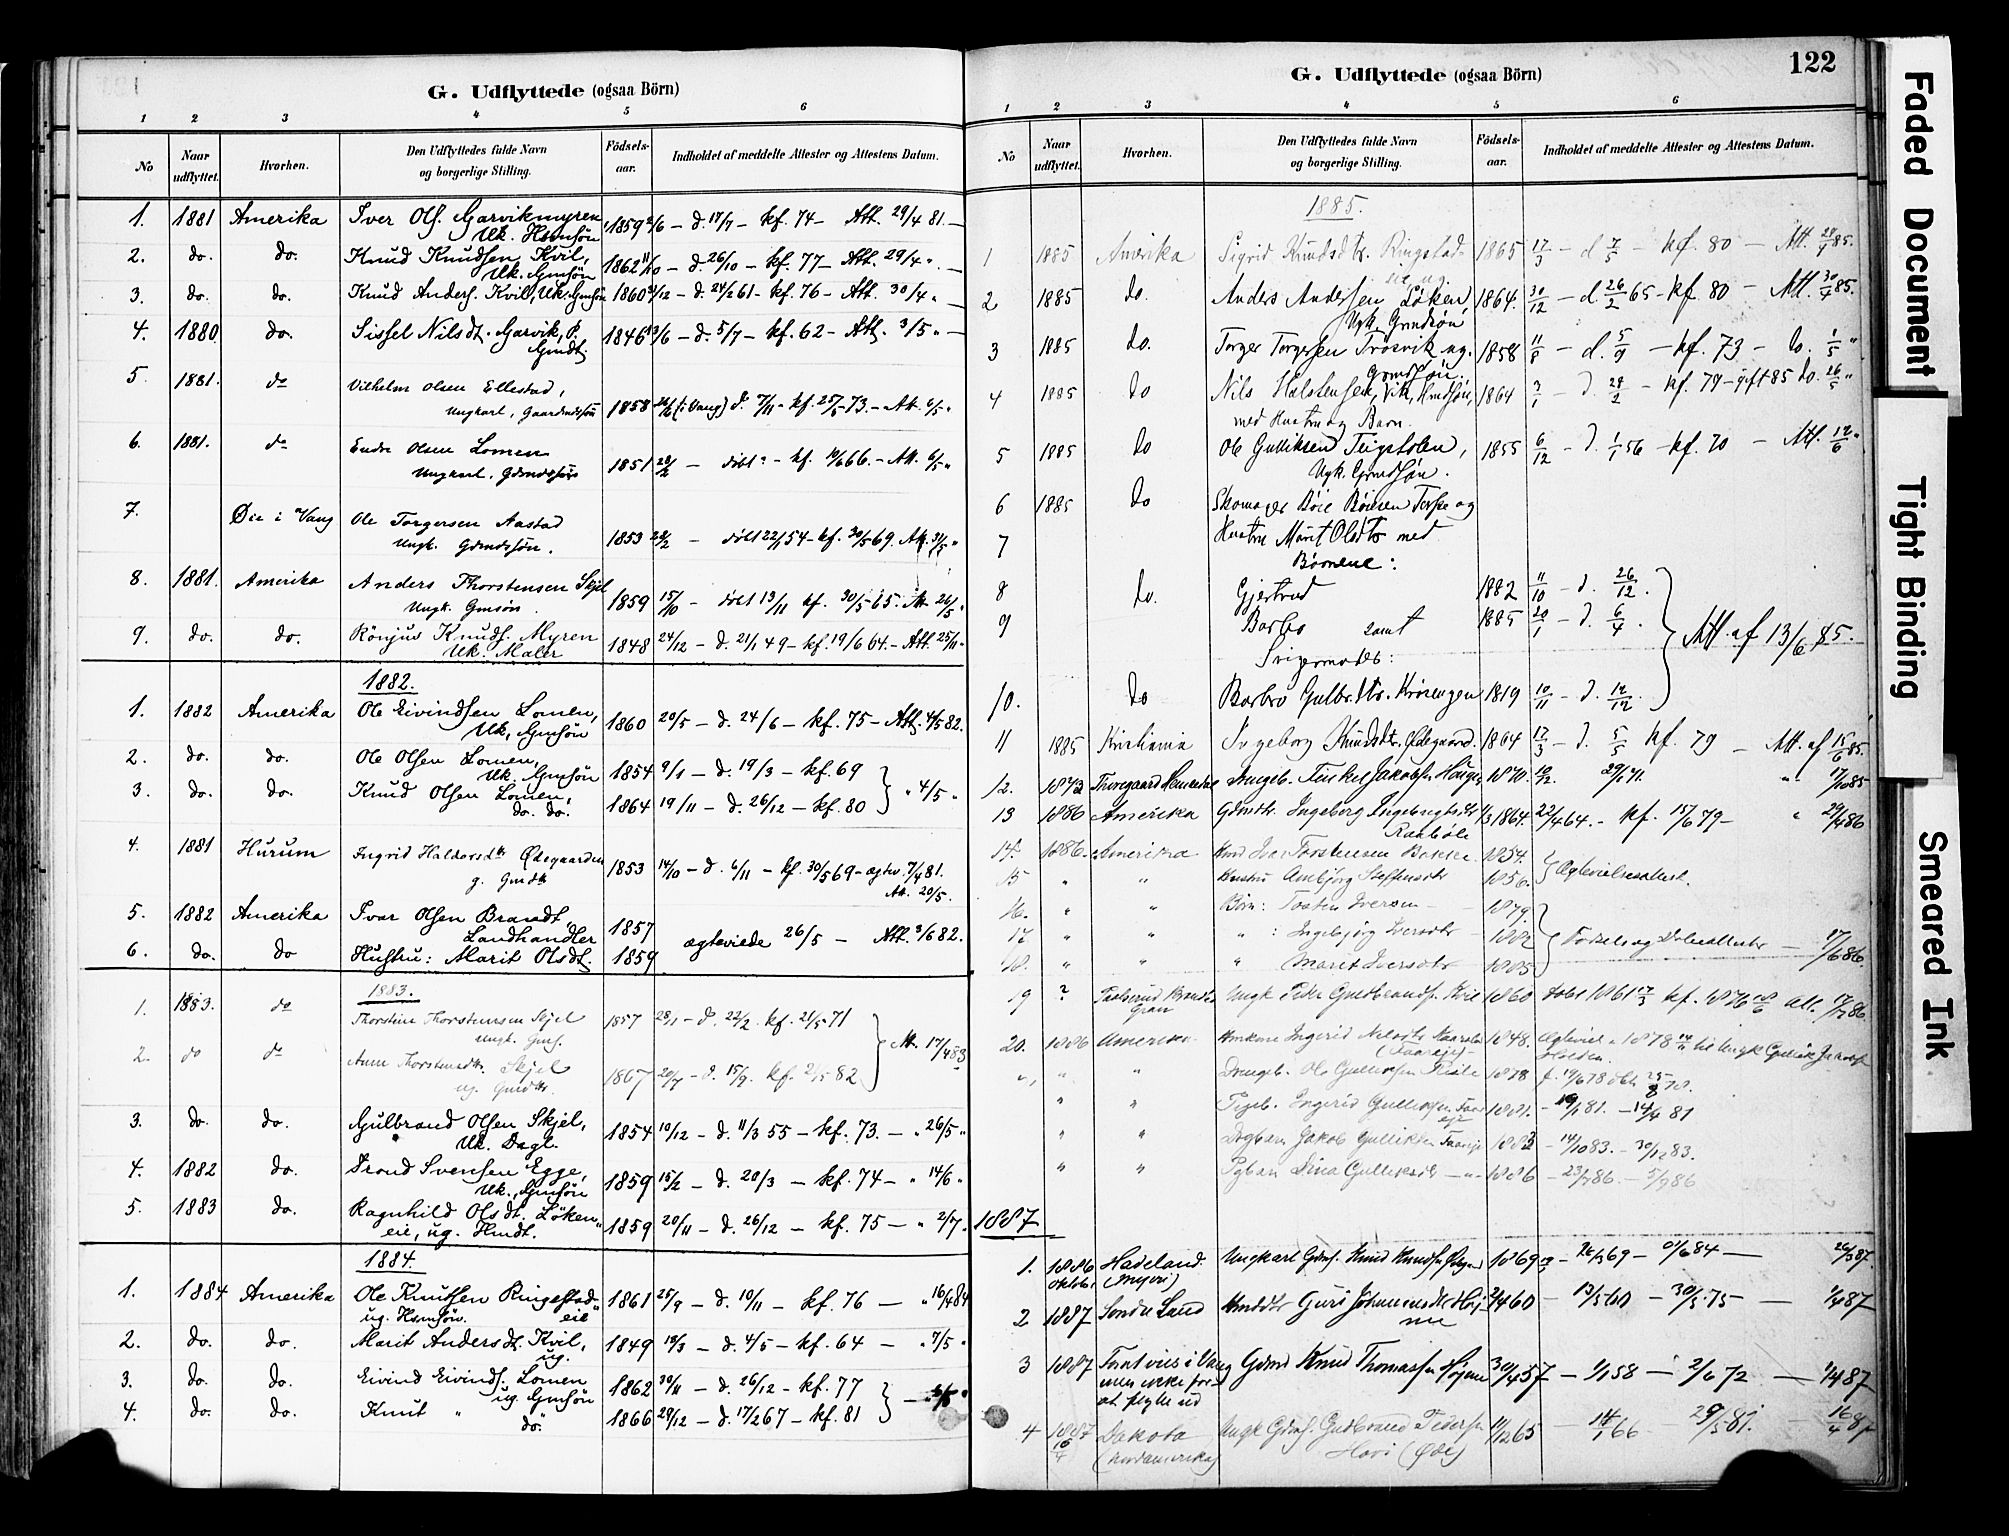 G. Udflyttede (ogsaa Börn)
1 2 3 4 5 6
No Naar udflyttet. Hvorhen. Den Udflyttedes fulde Navn og borgerlige Stilling. Födsels-aar. Indholdet af meddelte Attester og Attestens Datum.
1. 1881 Amerika Iver Ols. Garvikmyren, 1859 2/6 – d. 17/7 – kf. 74 – Att. 29/4 81. –
Uk. Hsmsön
2. do. do. Knud Knudsen Kvil, 1862 11/10 – d. 26/10 – kf. 77 – Att. 29/4 „ –
Uk. Gmsön
3. do. do. Knud Anders. Kvil, Uk. Gmsön 1860 /12 – d. 24/2 61 – kf. 76 – Att. 30/4 „ –
4. 1880 do. Sissel Nilsdt. Garvik, P. 1846 13/6 – d. 5/7 – kf. 62 – Att. 3/5 „ –
Gmdt.
5. 1881. do Vilhelm Olsen Ellestad,
Ungkarl, Gaardmdssön 1858 26/6 (i Vang) d. 7/11 – kf. 25/5 73. – Att. 6/5 „
6. 1881. do Endre Olsen Lomen
Ungkarl, Gdmdssön 1851 28/2 – döbt ? – kf. 10/6 66. – Att. 6/5 „
7. Öie i Vang Ole Torgersen Aastad
Ungk. Gdmdssön. 1853 28/2 – döbt 22/1 54 – kf. 30/5 69. Att. 31/5 „
8. 1881. Amerika Anders Thorstensen Skjel
Ungk. Gmsön. 1859 15/10 – döbt 13/11 kf. 30/5 65. Att. 26/5 „
9. do. do. Rönjus Knuds. Myren 1848 24/12 – d. 21/1 49 – kf. 19/6 64. – Att. 25/11 „
Uk. Maler
1882.
1. 1882 Amerika Ole Eivindsen Lomen, 1860 20/5 – d. 24/6 – kf. 75 – Att. 4/5 82.
Uk. Gmsön
2. do. do. Ole Olsen Lomen, 1854 9/1 – d. 19/3 – kf. 69
Uk. Gmsön
3. do. do. Knud Olsen Lomen, 1864 19/11 – d. 26/12 – kf. 80 „ 4/5 „
do. do.
4. 1881 Hurum Ingrid Haldorsdtr Ödegaarden
g. Gmdtr 1853 14/10 – d. 6/11 – kf. 30/5 69 – ægtev. 7/4 81.
Att. 20/5.
5. 1882 Amerika Ivar Olsen Brandt, 1857
Landhandler
ægteviede 26/5 – Att. 3/6 82.
6. do. do Hustru: Marit Olsdt. 1859
1883.
1. 1883. do Thorstein Thorstensen Skjel 1857 28/1 – d. 22/2. kf. 21/5 71
Ungk. Gms.
Att. 17/4 83
2. do do Anne Thorstensdtr. Skjel 1867 20/7 – d. 15/9. kf. 21/5 82
ug. Gmdtr.
3. do. do. Gulbrand Olsen Skjel, 1854 10/12 – d. 11/3 55 – kf. 73. – „ 26/5 „
Uk. Dagl.
4. 1882 do. Trond Svensen Egge, 1859 15/2 – d. 20/3 – kf. 74 – „ 14/6 „
Uk., Gmsön
5. 1883 do. Ragnhild Olsdt. Löken„ 1859 20/11 – d. 26/12 – kf. 75 – „ 2/7.
eie, ug. Hmdt.
1884.
1. 1884 Amerika Ole Knutsen Ringestad„ 1861 25/9 – d. 10/11 – kf. 76 – „ 16/4 84
ug. Hsmsön. eie
2. do. do. Marit Andersdt. Kvil, 1849 18/3 – d. 4/5 – kf. 64 – „ 7/5 „
ug.
3. do. do. Eivind Eivinds. Lomen 1862 30/11 – d. 26/12 – kf. 77
ug. Gmsön
4. do. do. Knut „ 1866 29/12 – d. 17/2 67 – kf. 81
do.
G. Udflyttede (ogsaa Börn)
122
1 2 3 4 5 6
No Naar udflyttet. Hvorhen. Den Udflyttedes fulde Navn og borgerlige Stilling. Födsels-aar. Indholdet af meddelte Attester og Attestens Datum.
1885.
1 1885 Amerika Sigrid Knudsdtr. Ringstad- 1865 17/3 – d 7/5 – kf. 80 – Att. 28/4 85.
eie ug
2 1885 do. Anders Andersen Löken 1864. 30/12 – d. 26/2 65 – kf. 80 – Att. 30/4 85.
Ugk. Grmdsön
3 1885 do. Torger Torgersen Trosvik ug. 1858 11/8 – d. 5/9 – kf. 73 – do. 1/5 „
Grmdsön.
4 1885 do Nils Halstensen, Vik, Hmdsön, 1864 3/1 – d. 28/2 – kf. 79 – gift 85 do. 26/5 „
med Hustru og Barn.
5 1885 do Ole Gulliksen Tingstolen, 1855 6/12 – d. 1/1 56 – kf. 70 – Att. 12/6 „
Ugk. Grmdsön.
6 1885 do Skomager Böie Böiesen Terpe og
7 Hustru Marit Olsdtr med
Börnene:
8 do. Gjertrud 1882 11/10 – d. 26/12.
9 Barbro samt 1885 20/1 – d. 6/4.
Att. af 13/6 85.
Svigermoder:
10. do Barbro Gulbr.dtr. Krösengen 1819 10/11 – d. 12/12.
11 1885 Kristiania Ingeborg Knudsdtr. Ödegaard. 1864 17/3 – d. 5/5 kf. 79 – Att. af 15/6 85.
12. 1873 Drengeb. Jakobs. 1870. 29/1 71. „ 17/10 85
13 1886 Amerika Gdmdtr. Ingeborg Ingebrigtsdtr 1864. 22/4 64. – kf. 15/6 79 – „ 29/4 86
14. 1886. Amerika Iver Torstensen Bakke 1854.
Ægtevielsesattest.
15 „ „ Hustru Ambjörg Steffensdtr 1856.
16. „ „ Börn: Tosten Iversen – 1879.
17 „ „ „ : Ingebjörg Iversdtr – 1882
Födsels og Daabsattester – 17/6 86.
18. „ „ „ Marit Iversdtr 1885
19 ? Gran Ungk Peder Gudbrands. Kvie 1860 döbt 1861 17/3 kf. 1876 18/6 Att. 17/7 86.
20. 1886 Amerika Ingerid Nilsdtr 1848. Ægteviet 1878 til Ungk Gullik Jakobs.
„ „ „ Drengeb. Ole Gulliksen 1878 f. 19/6 78 döbt 25/8 78.
„ „ Pigeb. Ingerid Gulliksdtr 1881. – 19/1 81. – 14/4 81
„ „ Drgbarn Jakob Gulliksen 1883 – 14/10 83. – 30/12 83.
„ „ Pgbarn Dina Gulliksdtr – „ – 1886 – 23/7 86. – 5/9 86
1887
1. 1886 Hadeland. Ungkarl Gdms. Knud Knudsen 1869 – 69 – 84 – 26/3 87
Oktbr.
2 1887 Söndre Land Hmddtr Guri Johannesdtr 60 – 13/5 60 – 30/5 75 – 1/4 87
3 1887 i Vang Gdmd Knud Thomassen Höjme 30/4 57 – 1/1 58 – 2/6 72 – 1/4 87
men ikke for
at flytte ud
4 1887 Dakota Ungk Gdms. Gudbrand Peders. 11/12 65 – 14/1 66 29/5 81. 16/4 87
16/4 (Nordamerika) Hovi (Öie)
Faded Document
Tight Binding
Smeared Ink